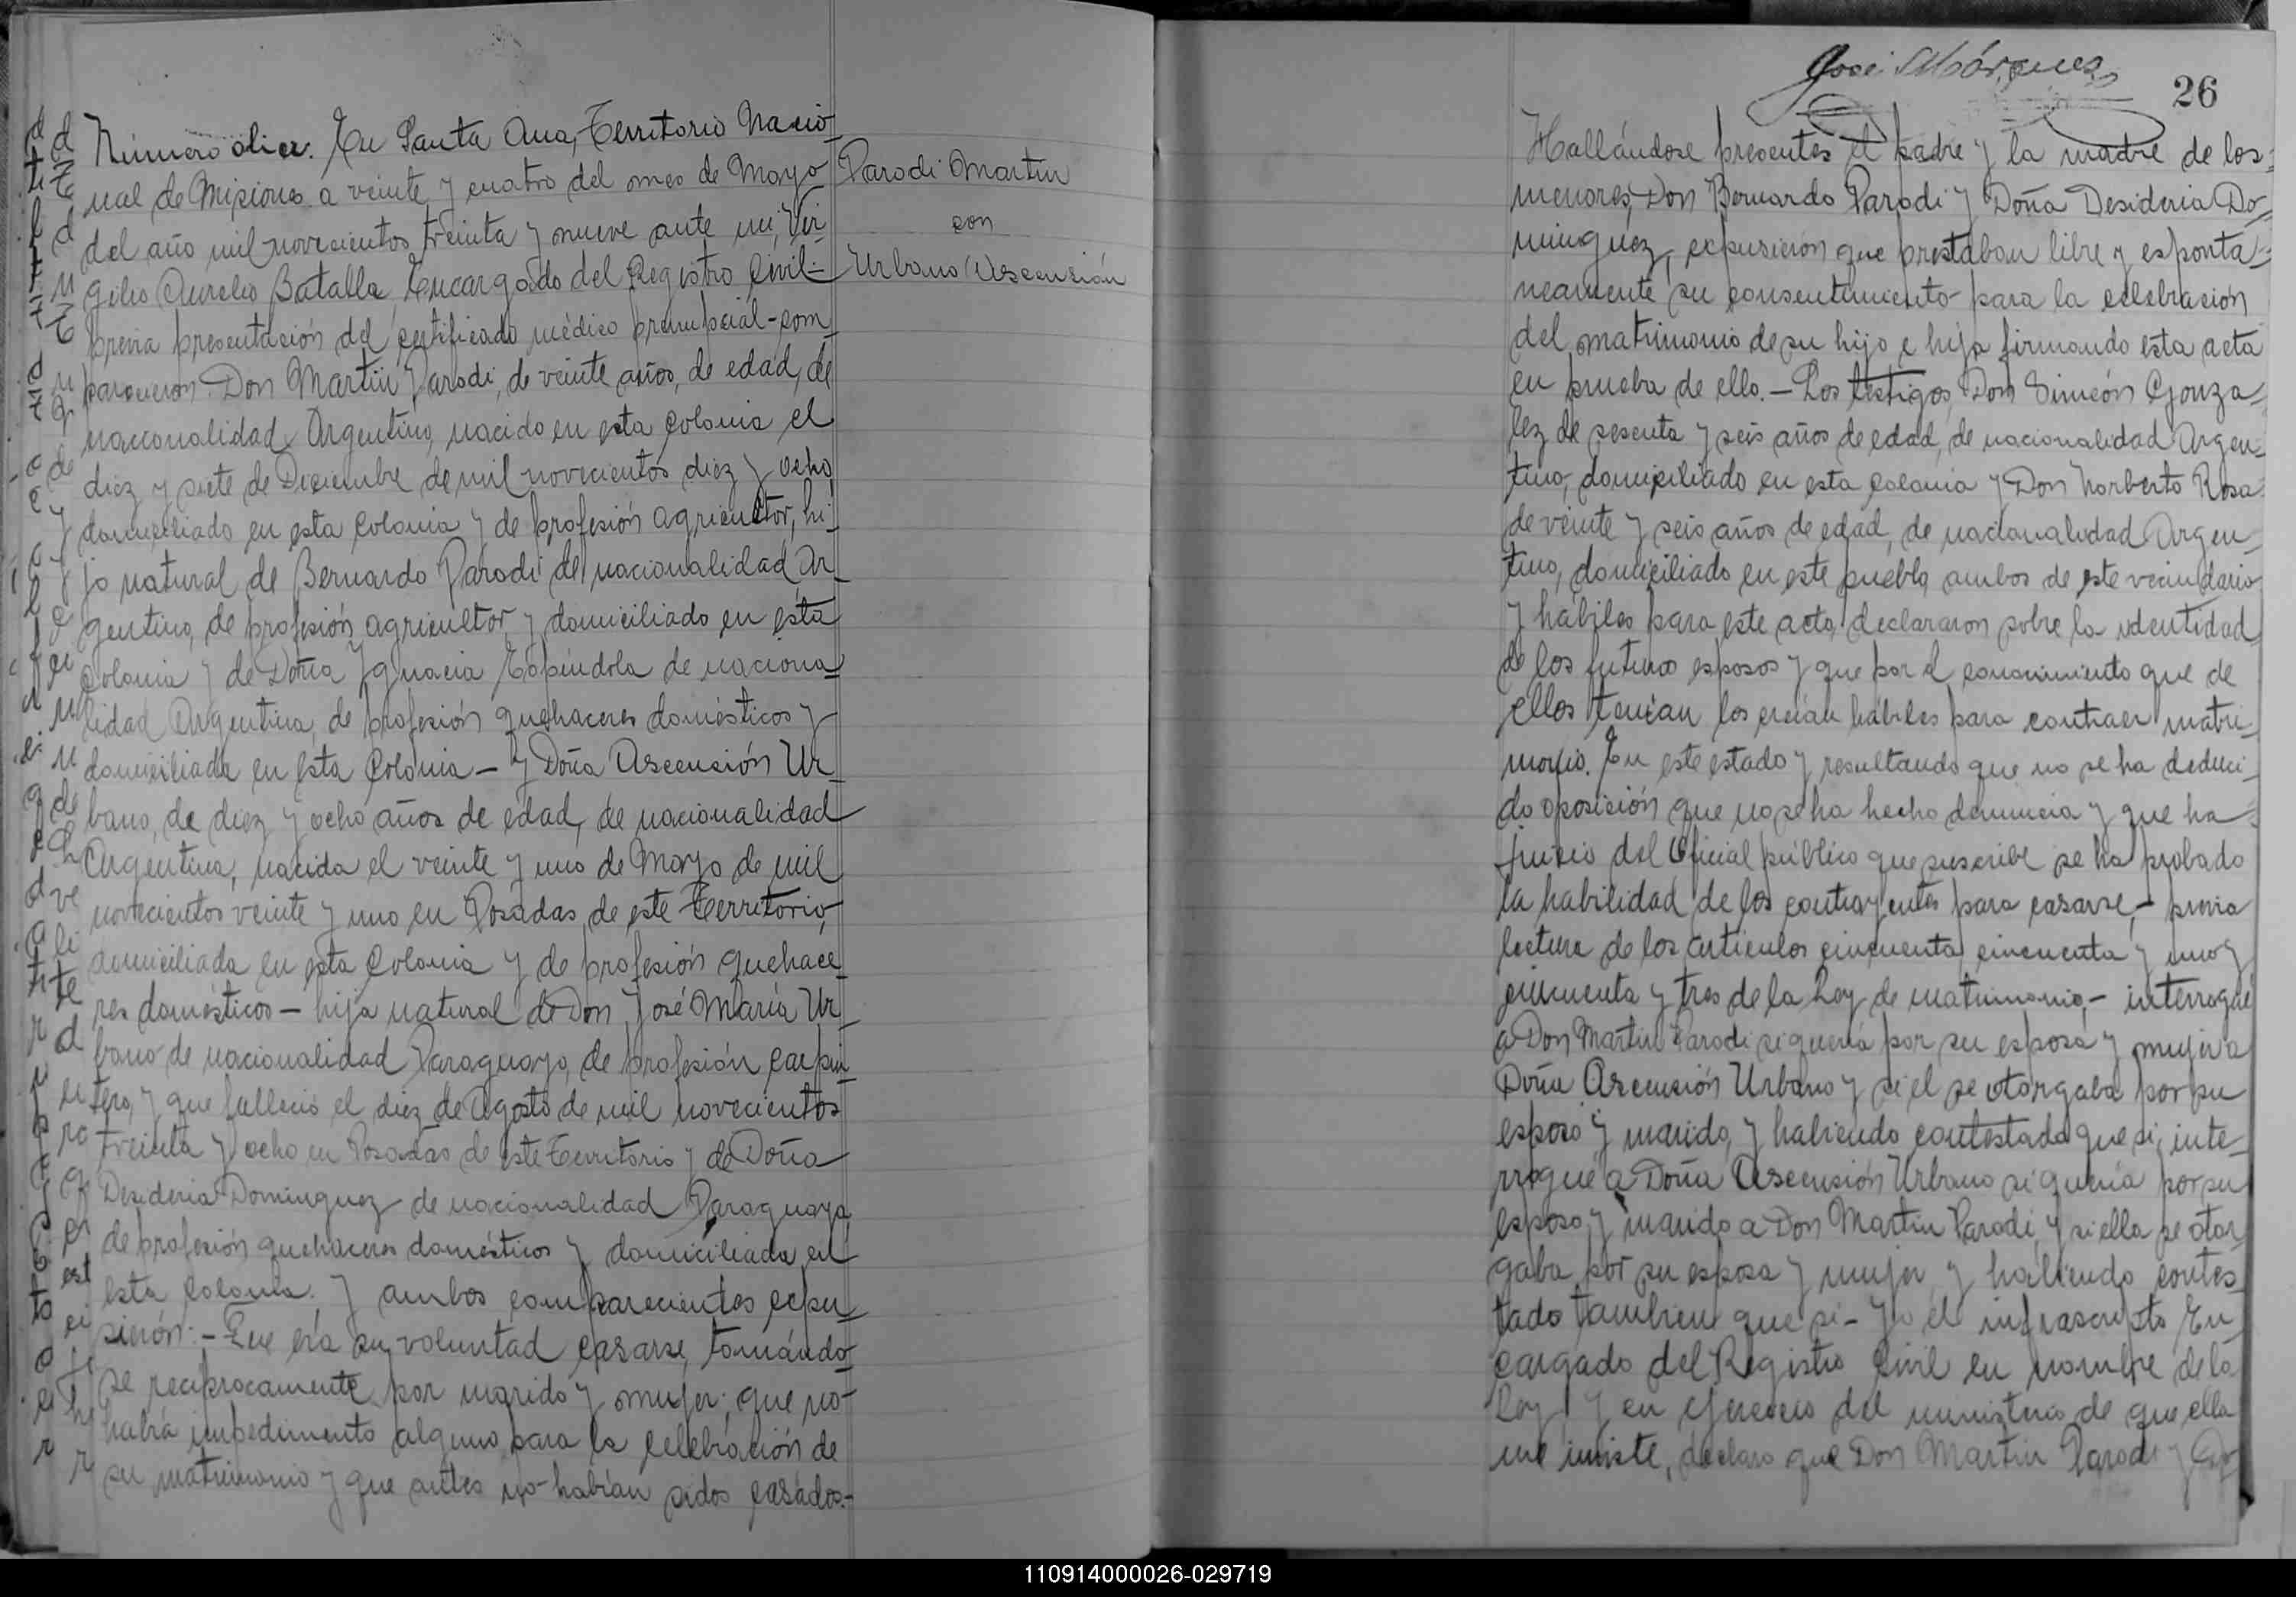 Número diez. En Santa Ana, Territorio Nacio
nal de Misiones a veinte y cuatro del mes de Mayo
del año mil novecientos treinta y nueve ante mi, Vir
gilio Aurelio Batalla Encargado del Registro Civil-
previa presentación del certificado médico prenupcial-com
parecieron Don Martin Parodi, de veinte años, de edad, de
nacionalidad Argentino, nacido en esta Colonia el
diez y siete de Diciembre de mil novecientos diez y ocho
domiciliado en esta Colonia y de profesión agricultor, hi
jo natural de Bernardo Parodi de nacionalidad Ar
gentino, de profesión agricultor y domiciliado en esta
Colonia y de Doña Ygnacia Espíndola de naciona
lidad Argentina, de profesión quehaceres domésticos y
domiciliada en esta Colonia - y Doña Ascensión Ur
bano, de diez y ocho años de edad, de nacionalidad
Argentina, nacida el veinte y uno de Mayo de mil
novecientos veinte y uno en Posadas, de este Territorio,
domiciliada en esta Colonia y de profesión quehace
res domésticos - hija natural de Don José María Ur
bano de nacionalidad Paraguayo, de profesión carpin
tero, y que falleció el diez de Agosto de mil novecientos
treinta y ocho en Posadas de este Territorio y de Doña
Desideria Dominguez de nacionalidad Paraguaya
de profesión quehaceres domésticos y domiciliada en
esta Colonia. Y ambos comparecientes expu
sieron:- Que era su voluntad casarse, tomándo
se reciprocamente por marido y mujer; que no
había impedimento alguno para la celebración de
su matrimonio y que antes no habían sidos casados.-
Parodi Martin
con
Urbano Ascensión
José Márquez
26
Hallándose presentes el padre y la madre de los
menores, Don Bernardo Parodi y Doña Desideria Do
minguez, expusieron que prestaban libre y esponta
neamente su consentimiento para la celebración
del matrimonio de su hijo e hija firmando esta acta
en prueba de ello.- Los testigos, Don Simeón Gonza
lez de sesenta y seis años de edad, de nacionalidad Argen
tino, domiciliado en esta Colonia y Don Norberto Rosa
de veinte y seis años de edad, de nacionalidad Argen
tino, domiciliado en este pueblo, ambos de este vecindario
y hábiles para este acto, declararon sobre la identidad
de los futuros esposos y que por el conocimiento que de
ellos tenían los creían hábiles para contraer matri
monio. En este estado y resultando que no se ha deduci
do oposición que no se ha hecho denuncia y que ha
juicio del Oficial público que suscribe se ha probado
la habilidad de los contrayentes para casarse,- previa
lectura de los artículos cincuenta, cincuenta y uno y
cincuenta y tres de la Ley de matrimonio,- interrogué
a Don Martin Parodi si quería por su esposa y mujer a
Doña Ascensión Urbano y si el se otorgaba por su
esposo y marido, y habiendo contestado que si, inte
rrogué a Doña Ascensión Urbano si quería por su
esposo y marido a Don Martin Parodi, y si ella se otor
gaba por su esposa y mujer y habiendo contes
tado tambien que si - Yo el infrascripto En
cargado del Registro Civil en nombre de la
Ley y en ejercicio del ministerio de que ella
me inviste, declaro que Don Martin Parodi y Do
110914000026-029719